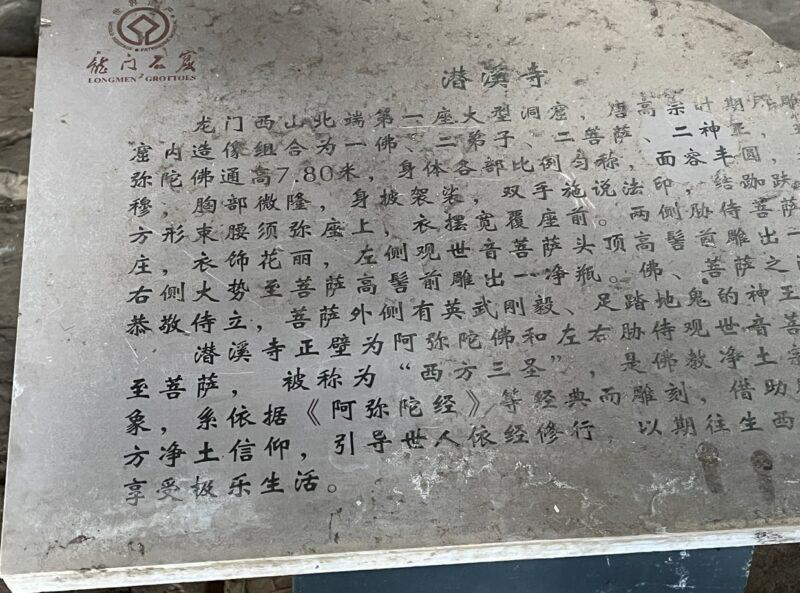 龙门石窟
LONGMEN GROTTOES
潜溪寺
龙门西山北端第一座大型洞窟，唐高宗时期所雕
窟内造像组合为一佛、二弟子、二菩萨、二神王，
弥陀佛通高7.80米，身体各部比例匀称，面容丰圆，
穆，胸部微隆，身披袈裟，双手施说法印，结跏趺
方形束腰须弥座上，衣摆宽覆座前。两侧胁侍菩萨
庄，衣饰花丽，左侧观世音菩萨头顶高髻前雕出一
右侧大势至菩萨高髻前雕出一净瓶。佛、菩萨之
恭敬侍立，菩萨外侧有英武刚毅、足踏地鬼的神王
潜溪寺正壁为阿弥陀佛和左右胁侍观世音菩
至菩萨，被称为“西方三圣”，是佛教净土宗
象，系依据《阿弥陀经》等经典而雕刻，借助
方净土信仰，引导世人依经修行，以期往生西
享受极乐生活。